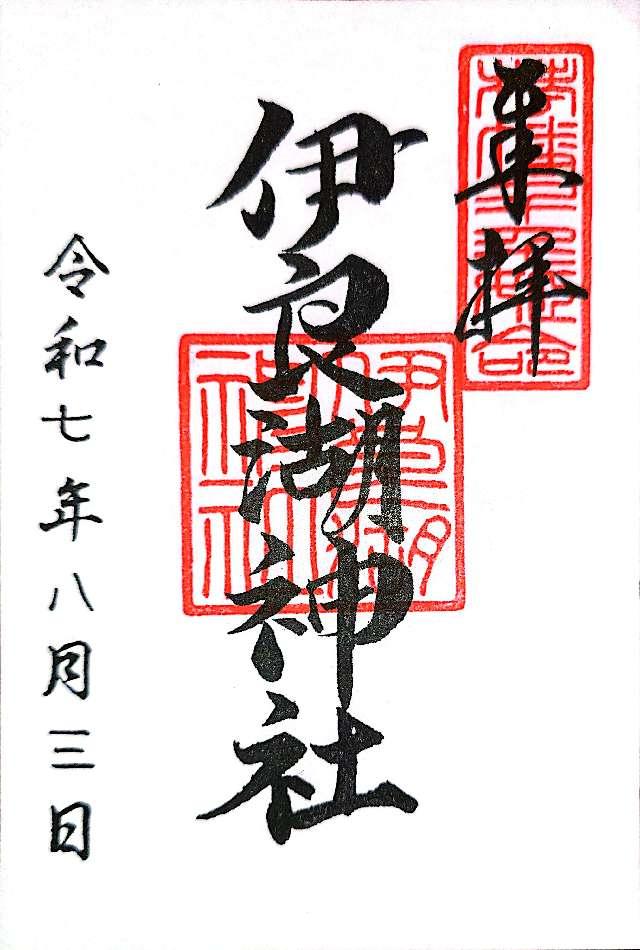 奉拝
伊良湖神社
令和七年八月三日
伊良湖神社